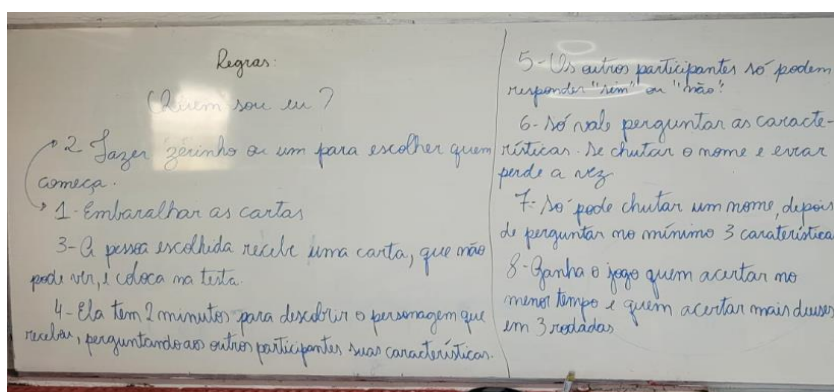 Regras:
Quem sou eu?
2 Fazer zerinho ou um para escolher quem
começa.
1- Embaralhar as cartas
3- A pessoa escolhida recebe uma carta, que não
pode ver, e coloca na testa.
4- Ela tem 2 minutos para descobrir o personagem que
recebeu, perguntando aos outros participantes suas características.
5- Os outros participantes só podem
responder "sim" ou "não".
6- Só vale perguntar as caracte-
rísticas. Se chutar o nome e errar
perde a vez
7- Só pode chutar um nome, depois
de perguntar no mínimo 3 caraterística
8- Ganha o jogo quem acertar no
menor tempo e quem acertar mais deuses
em 3 rodadas